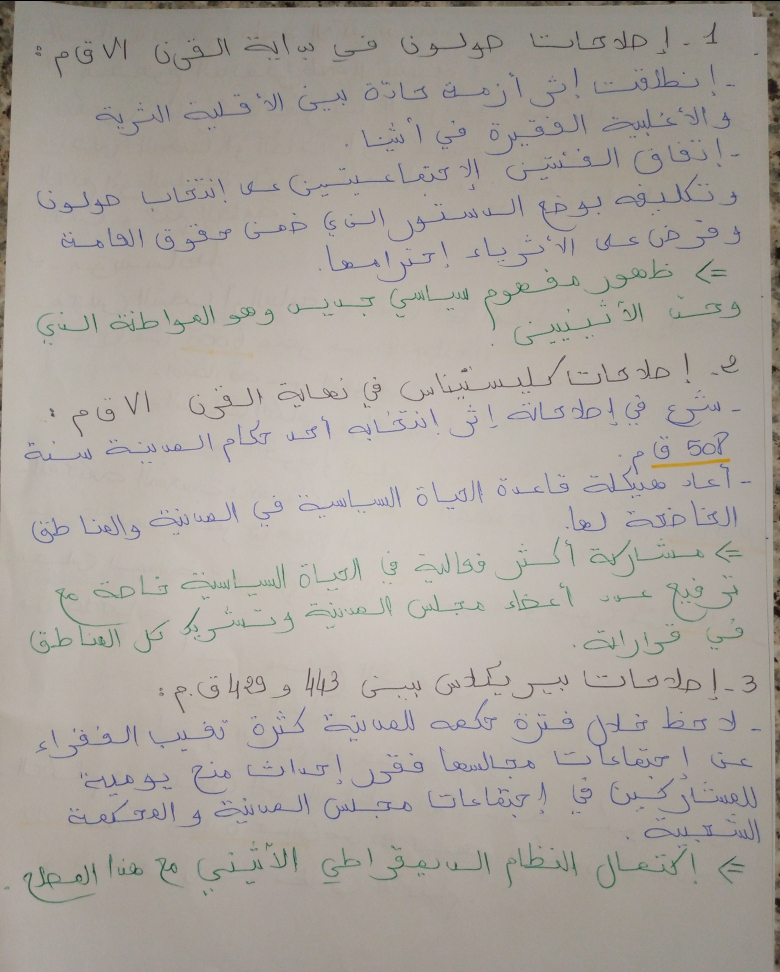 1- إصلاحات صولون في بداية القرن VI ق م :
- إنطلقت إثر أزمة حادّة بين الأقلية الثرية
والأغلبية الفقيرة في أثينا .
- إتفاق الفئتين الإجتماعيتين على إنتخاب صولون
وتكليفه بوضع الدستور الذي ضمن حقوق العامة
وفرض على الأثرياء إحترامها.
<= ظهور مفهوم سياسي جديد وهو المواطنة الذي
وحّد الأثينيين !
2- إصلاحات كليستيناس في نهاية القرن VI ق م :
- شرع في إصلاحاته إثر إنتخابه أحد حكام المدينة سنة
508 ق م.
- أعاد هيكلة قاعدة الحياة السياسية في المدينة والمناطق
الخاضعة لها.
<= مشاركة أكثر فعالية في الحياة السياسية خاصة مع
ترفيع عدد أعضاء مجلس المدينة وتشريك كل المناطق
في قراراته .
3- إصلاحات بيريكلاس بين 443 و 429 ق.م :
- لاحظ خلال فترة حكمه للمدينة كثرة تغيب الفقراء
عن إجتماعات مجالسها فقرر إحداث منح يومية
للمشاركين في إجتماعات مجلس المدينة و المحكمة
الشعبية .
<= إكتمال النظام الديمقراطي الأثيني مع هذا المصلح .